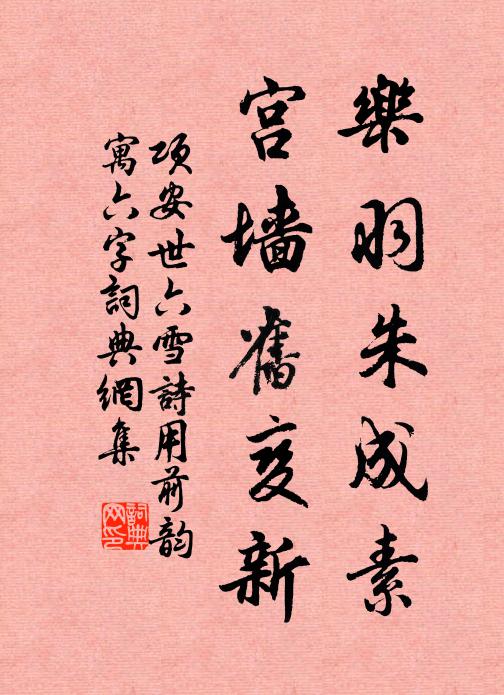 樂羽朱成素
宫墙舊变新
项安世六雪詩用前韵
寓六字詞典網集
詞典网印